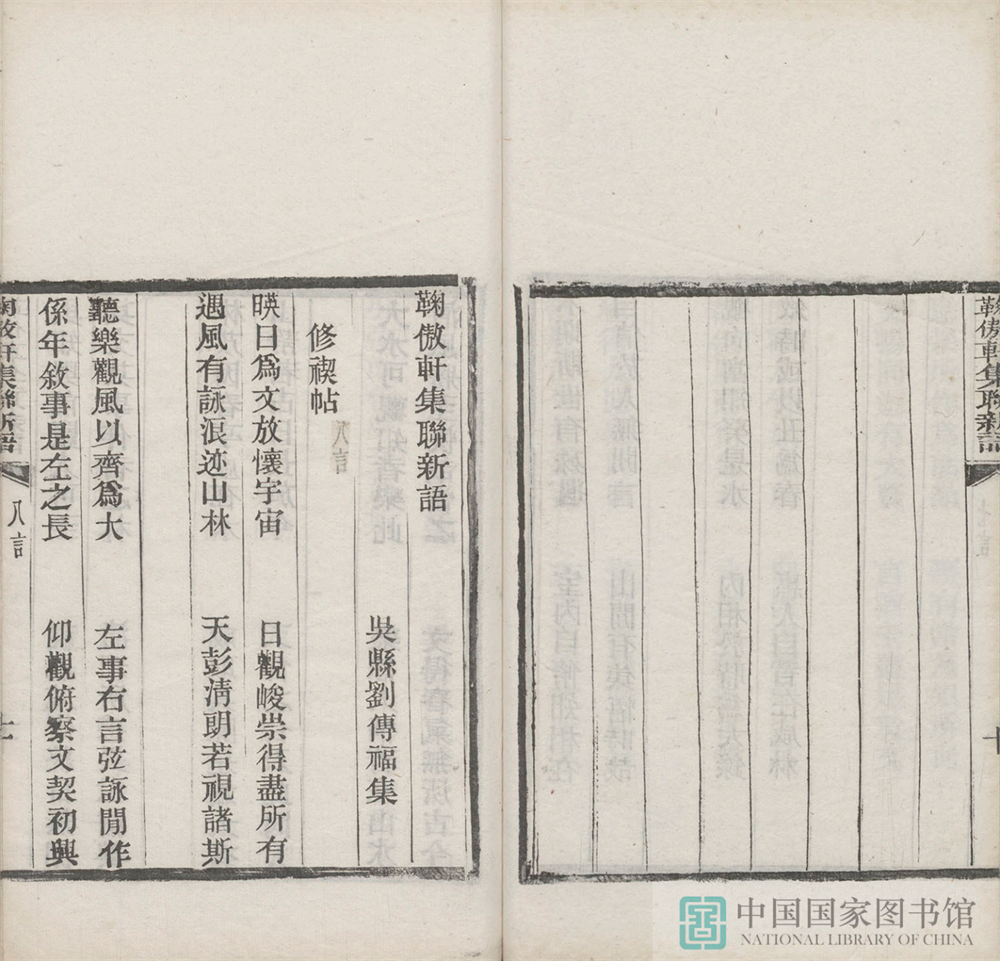 鞠傲軒集聯新語
鞠傲軒集聯新語
吳縣劉傳福集
修禊帖 八言
暎日爲文放懷宇宙 日觀峻崇得盡所有
遇風有詠浪迹山林 天彭淸朗若視諸斯
聽樂觀風以齊爲大 左事右言弦詠閒作
係年敘事是左之長 仰觀俯察文契初興
八言
中国国家图书馆
NATIONAL LIBRARY OF CHINA